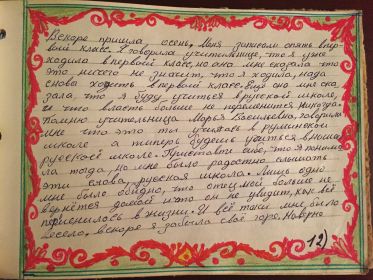 Вскоре пришла, осень. Меня записали опять впер-
вой класс. Я говорила учительнице, что я уже
ходила в первой класс, но она мне сказала что
это ничего не значит, что я ходила, надо
снова ходить в первой класс. Ещё она мне ска
зала, что я буду учиться в русской школе,
и что власть больше не переменится никогда.
Помню учительница Марья Васильевна, говорила
мне что это ты училась в румынской
школе а типерь будешь учиться в нашей
русской школе. Просто так оно, что я поним
ла тогда, но мне было радостно слышать
эти слова, русская школа. Лишь одно
мне было обидно, что отец мой больше не
вернётся домой и что он не увидит, как всё
переменилось в жизни. И всё таки мне было
весело. вскоре я забыла своё горе. Наверно
12)